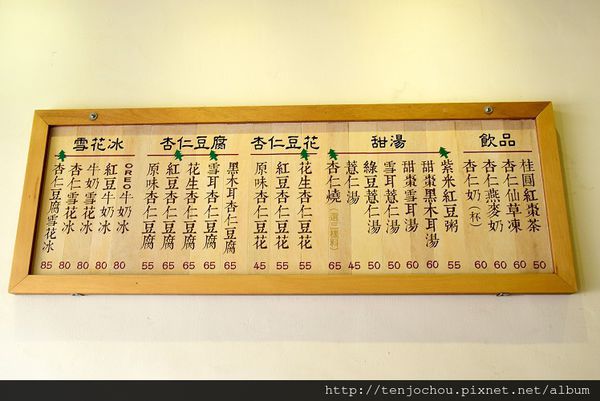 雪花冰
杏仁豆腐雪花冰 85
杏仁雪花冰 80
牛奶雪花冰 80
紅豆牛奶冰 80
OREO牛奶冰 80
杏仁豆腐
原味杏仁豆腐 55
紅豆杏仁豆腐 65
花生杏仁豆腐 65
雪耳杏仁豆腐 65
黑木耳杏仁豆腐 65
杏仁豆花
原味杏仁豆花 45
紅豆杏仁豆花 55
花生杏仁豆花 55
甜湯
杏仁燒(選三樣料) 65
薏仁湯 45
綠豆薏仁湯 50
雪耳薏仁湯 50
甜棗雪耳湯 60
甜棗黑木耳湯 60
紫米紅豆粥 55
飲品
杏仁奶(杯) 60
杏仁燕麥奶 60
杏仁仙草凍 60
桂圓紅棗茶 50
http://tenjochou.pixnet.net/album